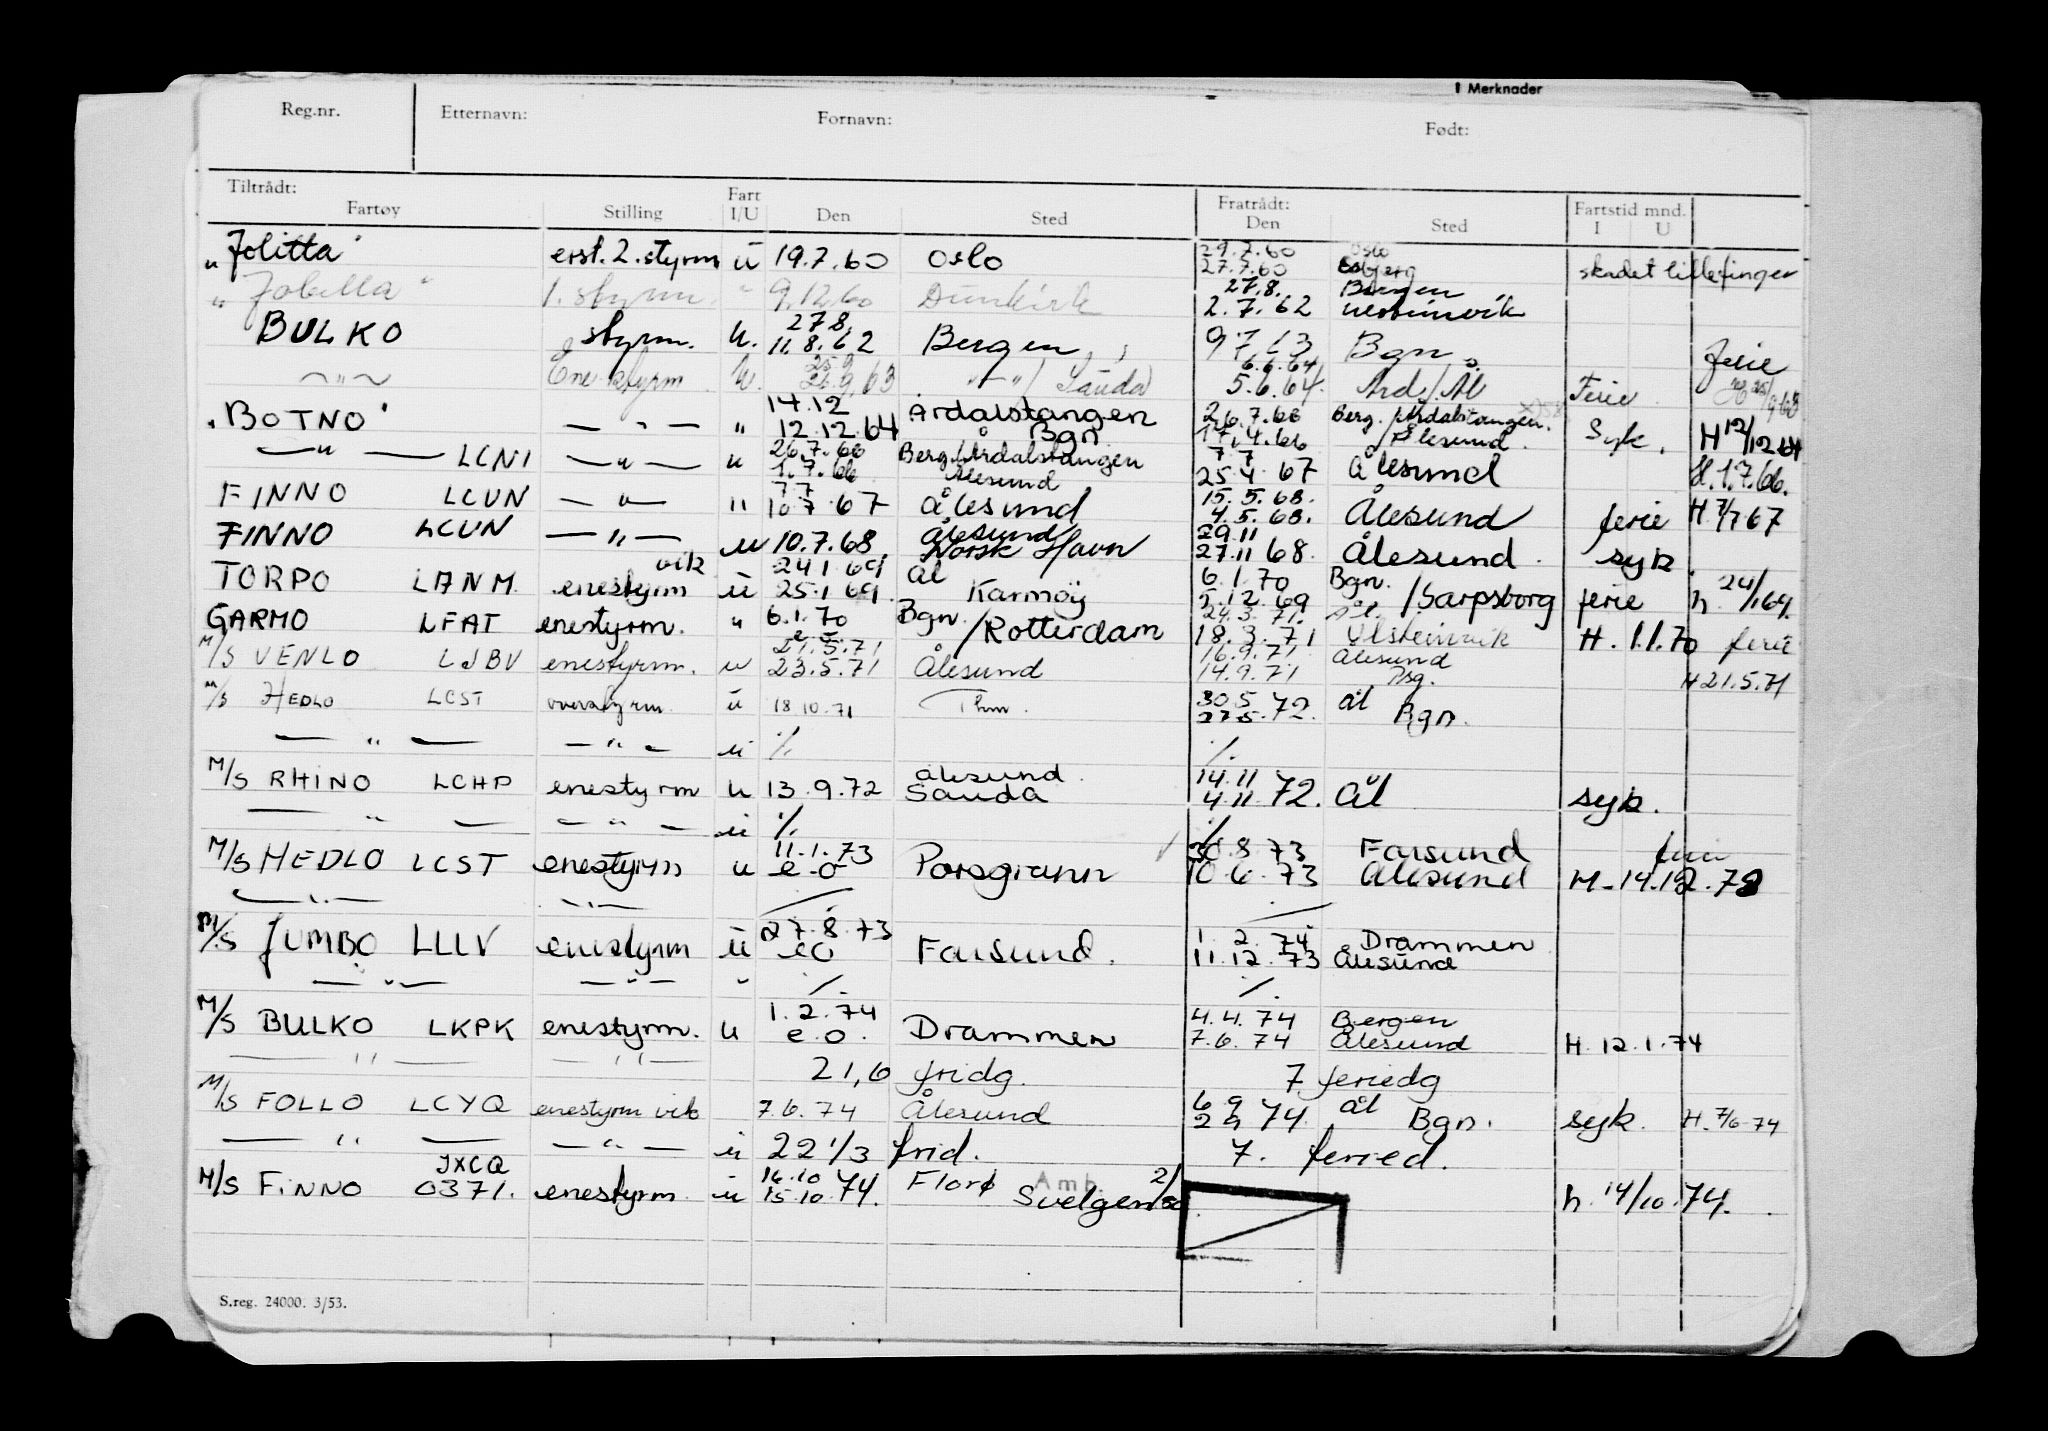 Merknader
Reg.nr. Etternavn: Fornavn: Født:
Tiltrådt: Fart Fratrådt: Fartstid mnd.
Fartøy Stilling I/U Den Sted Den Sted I U
29.7.60 Oslo
"Jolitta" erst. 2. styrm u 19.7.60 Oslo 27.7.60 Esbjerg skadet lillefinger
27.8. Bergen
" Jobella " 1. styrm. " 9.12.60 Dunkirk 2.7.62
27.8.
BULKO styrm. u. 11.8.62 Bergen 9.7.63 Bgn. ferie
25.9 6.6.64
— " — Ene styrm u. 26.9.63 — " — / Sauda 5.6.64. Ard/Ål Ferie
14.12 Årdalstangen 26.7.66 Berg./Årdalstangen.
"BOTNO" — " — " 12.12.64 Bgn 17.4.66 Ålesund. Syk. H 12/12 64
26.7.66 Berg./Årdalstangen 7.7
— " — LCNI — " — u 1.7.66 Ålesund 25.4.67 Ålesund H. 1.7.66.
7.7 15.5.68.
FINNO LCUN — " — " 10.7.67 Ålesund 4.5.68. Ålesund ferie H 7/7 67
Ålesund 29.11
FINNO LCUN — " — u 10.7.68. Norsk Havn 27.11 68. Ålesund. syk.
vik 24.1.69 Ål 6.1.70 Bgn.
TORPO LANM. enestyrm u 25.1 69. Karmøy 5.12.69 /Sarpsborg ferie h. 24/1 69.
6.1.70 Bgn. 24.3.71. Ål.
GARMO LFAT enestyrm. " e.o. /Rotterdam 18.3.71 Ulsteinvik H. 1.1.70 ferie
21.5.71 16.9.71 Ålesund
M/S VENLO LJBV enestyrm. u 23.5.71 Ålesund 14.9.71 Psg. H 21.5.71
30.5
M/S HEDLO LCST overstyrm u 18.10.71 Thm. 27.5.72. Ål Bgn.
— " — — " — u ./. ./.
Ålesund. 14.11
M/S RHINO LCHP enestyrm u 13.9.72 Sauda 4.11 72. Ål syk.
— " — — " — u ./. ./.
11.1.73 30.8.73 Farsund
M/S HEDLO LCST enestyrm u e.o Porsgrunn 10.6.73 Ålesund
— " — — " — / /
27.8.73 1.2.74 Drammen
M/S JUMBO LLLV enestyrm u eo Farsund. 11.12.73 Ålesund
— " — — " — " ./. ./.
1.2.74 4.4.74 Bergen
M/S BULKO LKPK enestyrm. u e.o. Drammen 7.6.74 Ålesund H. 12.1.74
— " — — " — 21,6 fridg. 7 feriedg
6.9
M/S FOLLO LCYQ enestyrm vik 7.6.74 Ålesund 2.9 74. Ål Bgn. syk. H. 7/6 74
— " — — " — u 22 1/3 frid. 7. feried.
JXCQ 16.10 Florø Amb.
M/S FINNO 0371. enestyrm. u 15.10 74. Svelgen h. 14/10.74.
S.reg. 24000. 3/53.